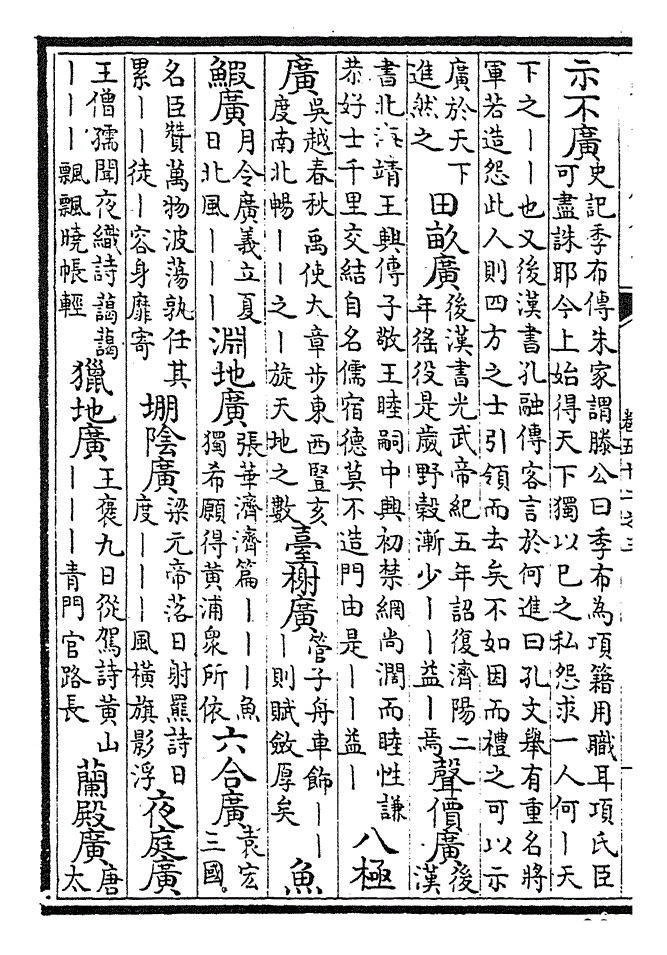 示不廣
史記季布傳朱家謂滕公曰季布為項籍用職耳項氏臣
可盡誅耶今上始得天下獨以已之私怨求一人何丨天
下之丨丨也又後漢書孔融傳客言於何進曰孔文舉有重名將
軍若造怨此人則四方之士引領而去矣不如因而禮之可以示
廣於天下
進然之
田畝廣
後漢書光武帝紀五年詔復濟陽二
年徭役是歲野穀漸少丨丨益丨焉
聲價廣
後
漢
書北海靖王興傳子敬王睦嗣中興初禁網尚濶而睦性謙
恭好士千里交結自名儒宿德莫不造門由是丨丨益丨
八極
廣
吳越春秋禹使大章步東西豎亥
度南北暢丨丨之丨旋天地之數
臺榭廣
管子舟車飾丨丨
丨則賦斂厚矣
魚
鰕廣
月令廣義立夏
日北風丨丨丨
淵地廣
張華濟濟篇丨丨丨魚
獨希願得黃浦衆所依
六合廣
袁宏
三國
名臣贊萬物波蕩孰任其
累丨丨徒丨容身靡寄
堋陰廣
梁元帝落日射羆詩日
度丨丨丨風橫旗影浮
夜庭廣
王僧孺聞夜織詩藹藹
丨丨丨飄飄曉帳輕
獵地廣
王褒九日從駕詩黃山
丨丨丨青門官路長
蘭殿廣
唐
太